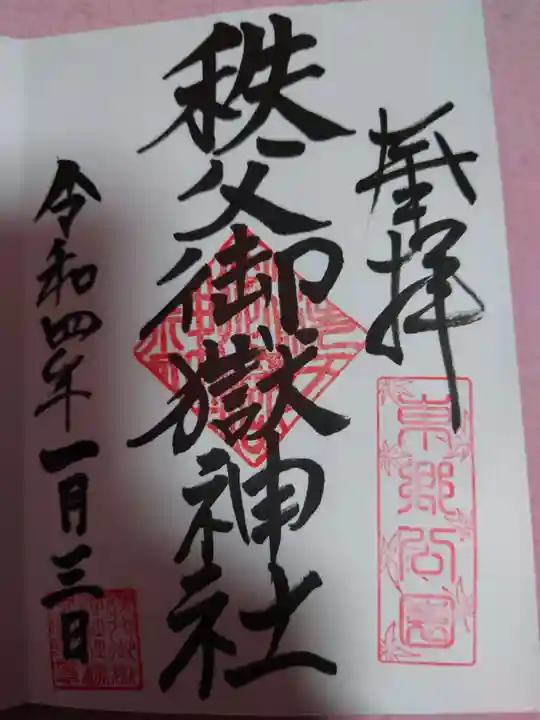 奉拝
東郷公園
秩父御嶽神社
令和四年一月三日